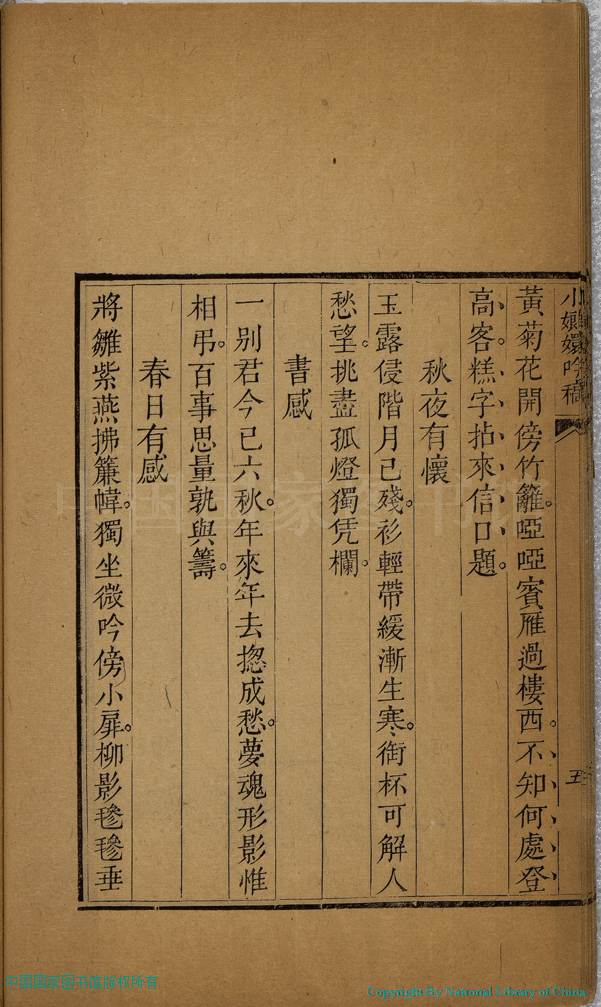 小嫏嬛吟稿
五
黃菊花開傍竹籬。啞啞賓雁過樓西。不知何處登
高客。糕字拈來信口題。
秋夜有懷
玉露侵階月已殘。衫輕帶緩漸生寒。銜杯可解人
愁望。挑盡孤燈獨凭欄。
書感
一別君今已六秋。年來年去揔成愁。夢魂形影惟
相弔。百事思量孰與籌。
春日有感
將雛紫燕拂簾幃。獨坐微吟傍小扉。柳影毿毿垂
Copyright By National Library of China